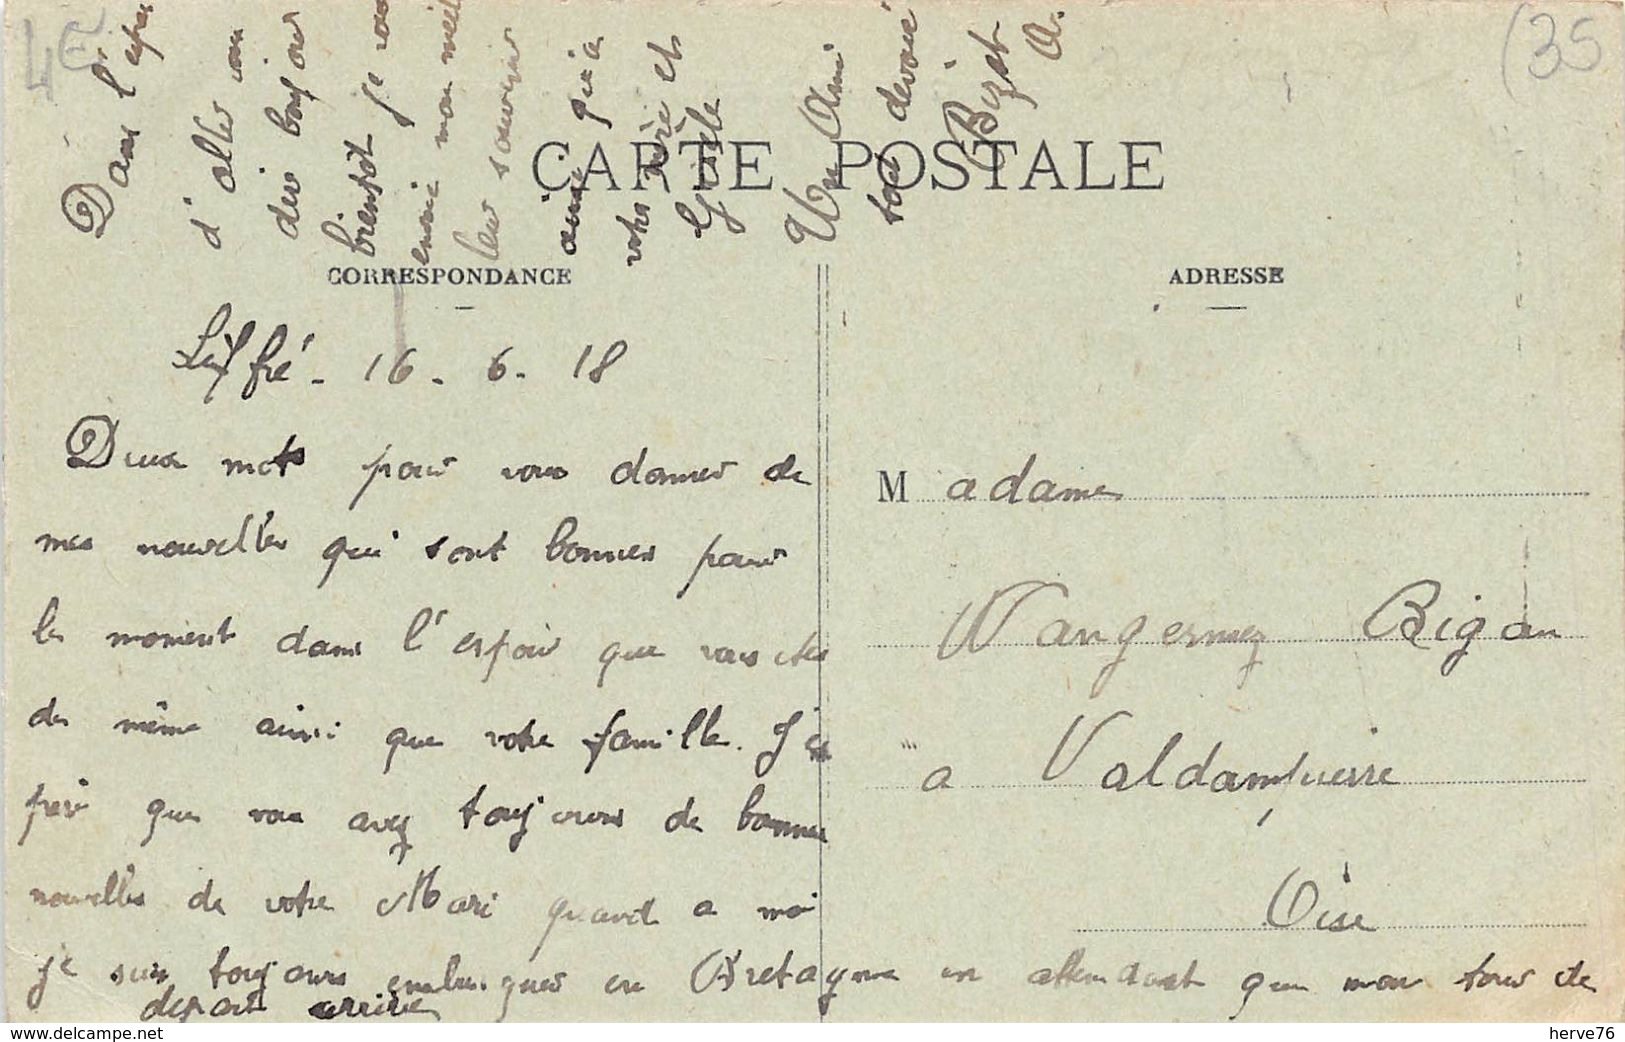 4€
(35
CARTE POSTALE
CORRESPONDANCE
Liffré - 16 - 6 - 18
Deux mots pour vous donner de
mes nouvelles qui sont bonnes pour
le moment dans l'espoir que vous êtes
de même ainsi que votre famille. J'es
père que vous avez toujours de bonnes
nouvelles de votre Mari quand a moi
je suis toujours en Bretagne en attendant que mon tour de
depart arrive
Dans l'espoir
d'aller vous
dire bonjour
bientôt je vous
envoie mon meil
leur souvenir
ainsi qu'a
votre mère et
Gisèle
Un Ami
tout devoué
Bizet
A.
ADRESSE
Madame
Vangermez Bigan
a Valdampierre
Oise
www.delcampe.net
herve76